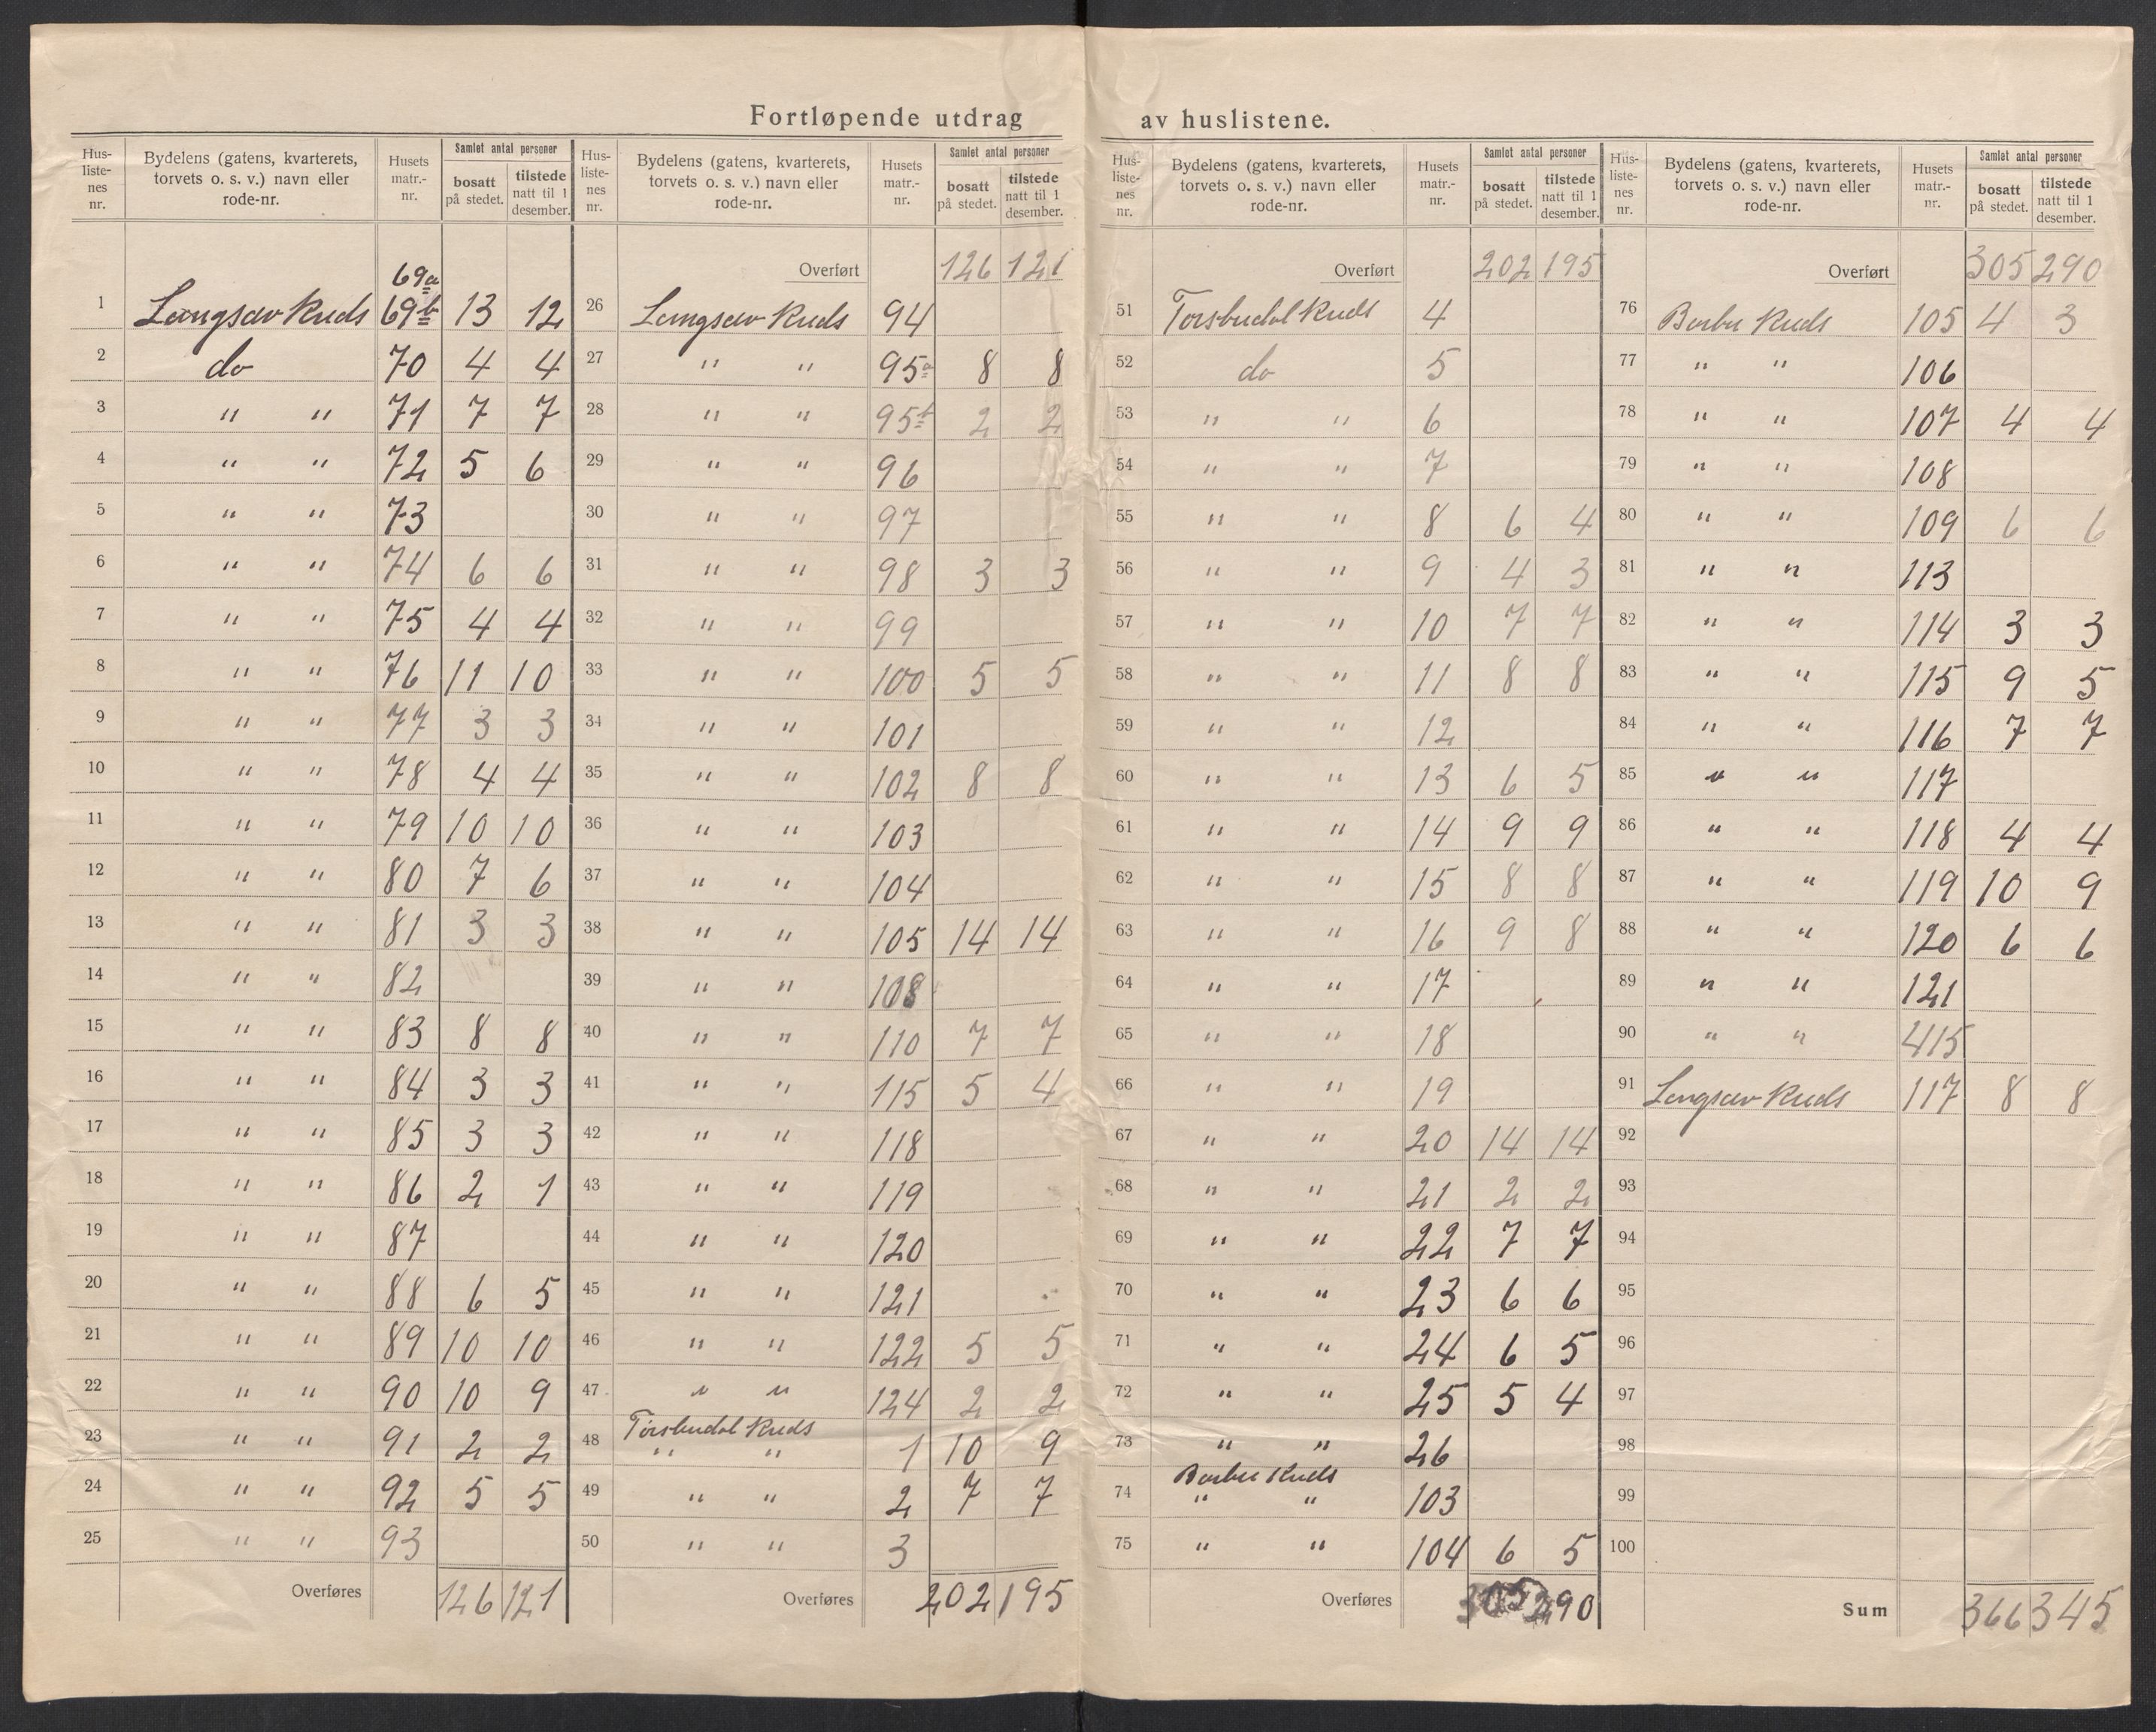 Fortløpende utdrag av huslistene.
Hus-liste-nes nr. Bydelens (gatens, kvarterets, torvets o. s. v.) navn eller rode-nr. Husets matr.-nr. Samlet antal personer bosatt på stedet. tilstede natt til 1 desember.
69a
1 Langsæv Kreds 69b 13 12
2 do 70 4 4
3 " " 71 7 7
4 " " 72 5 6
5 " " 73
6 " " 74 6 6
7 " " 75 4 4
8 " " 76 11 10
9 " " 77 3 3
10 " " 78 4 4
11 " " 79 10 10
12 " " 80 7 6
13 " " 81 3 3
14 " " 82
15 " " 83 8 8
16 " " 84 3 3
17 " " 85 3 3
18 " " 86 2 1
19 " " 87
20 " " 88 6 5
21 " " 89 10 10
22 " " 90 10 9
23 " " 91 2 2
24 " " 92 5 5
25 " " 93
Overføres 126 121
Hus-liste-nes nr. Bydelens (gatens, kvarterets, torvets o. s. v.) navn eller rode-nr. Husets matr.-nr. Samlet antal personer bosatt på stedet. tilstede natt til 1 desember.
Overført 126 121
26 Langsæv Kreds 94
27 " " 95a 8 8
28 " " 95b 2 2
29 " " 96
30 " " 97
31 " " 98 3 3
32 " " 99
33 " " 100 5 5
34 " " 101
35 " " 102 8 8
36 " " 103
37 " " 104
38 " " 105 14 14
39 " " 108
40 " " 110 7 7
41 " " 115 5 4
42 " " 118
43 " " 119
44 " " 120
45 " " 121
46 " " 122 5 5
47 " " 124 2 2
Torsbudal Kreds
48 " " 1 10 9
49 " " 2 7 7
50 " " 3
Overføres 202 195
Hus-liste-nes nr. Bydelens (gatens, kvarterets, torvets o. s. v.) navn eller rode-nr. Husets matr.-nr. Samlet antal personer bosatt på stedet. tilstede natt til 1 desember.
Overført 202 195
51 Torsbudal Kreds 4
52 do 5
53 " " 6
54 " " 7
55 " " 8 6 4
56 " " 9 4 3
57 " " 10 7 7
58 " " 11 8 8
59 " " 12
60 " " 13 6 5
61 " " 14 9 9
62 " " 15 8 8
63 " " 16 9 8
64 " " 17
65 " " 18
66 " " 19
67 " " 20 14 14
68 " " 21 2 2
69 " " 22 7 7
70 " " 23 6 6
71 " " 24 6 5
72 " " 25 5 4
73 " " 26
Barbu Kreds
74 " " 103
75 " " 104 6 5
Overføres 305 290
Hus-liste-nes nr. Bydelens (gatens, kvarterets, torvets o. s. v.) navn eller rode-nr. Husets matr.-nr. Samlet antal personer bosatt på stedet. tilstede natt til 1 desember.
Overført 305 290
76 Barbu Kreds 105 4 3
77 " " 106
78 " " 107 4 4
79 " " 108
80 " " 109 6 6
81 " " 113
82 " " 114 3 3
83 " " 115 9 5
84 " " 116 7 7
85 " " 117
86 " " 118 4 4
87 " " 119 10 9
88 " " 120 6 6
89 " " 121
90 " " 415
91 Langsæv Kreds 117 8 8
92
93
94
95
96
97
98
99
100
Sum 366 345